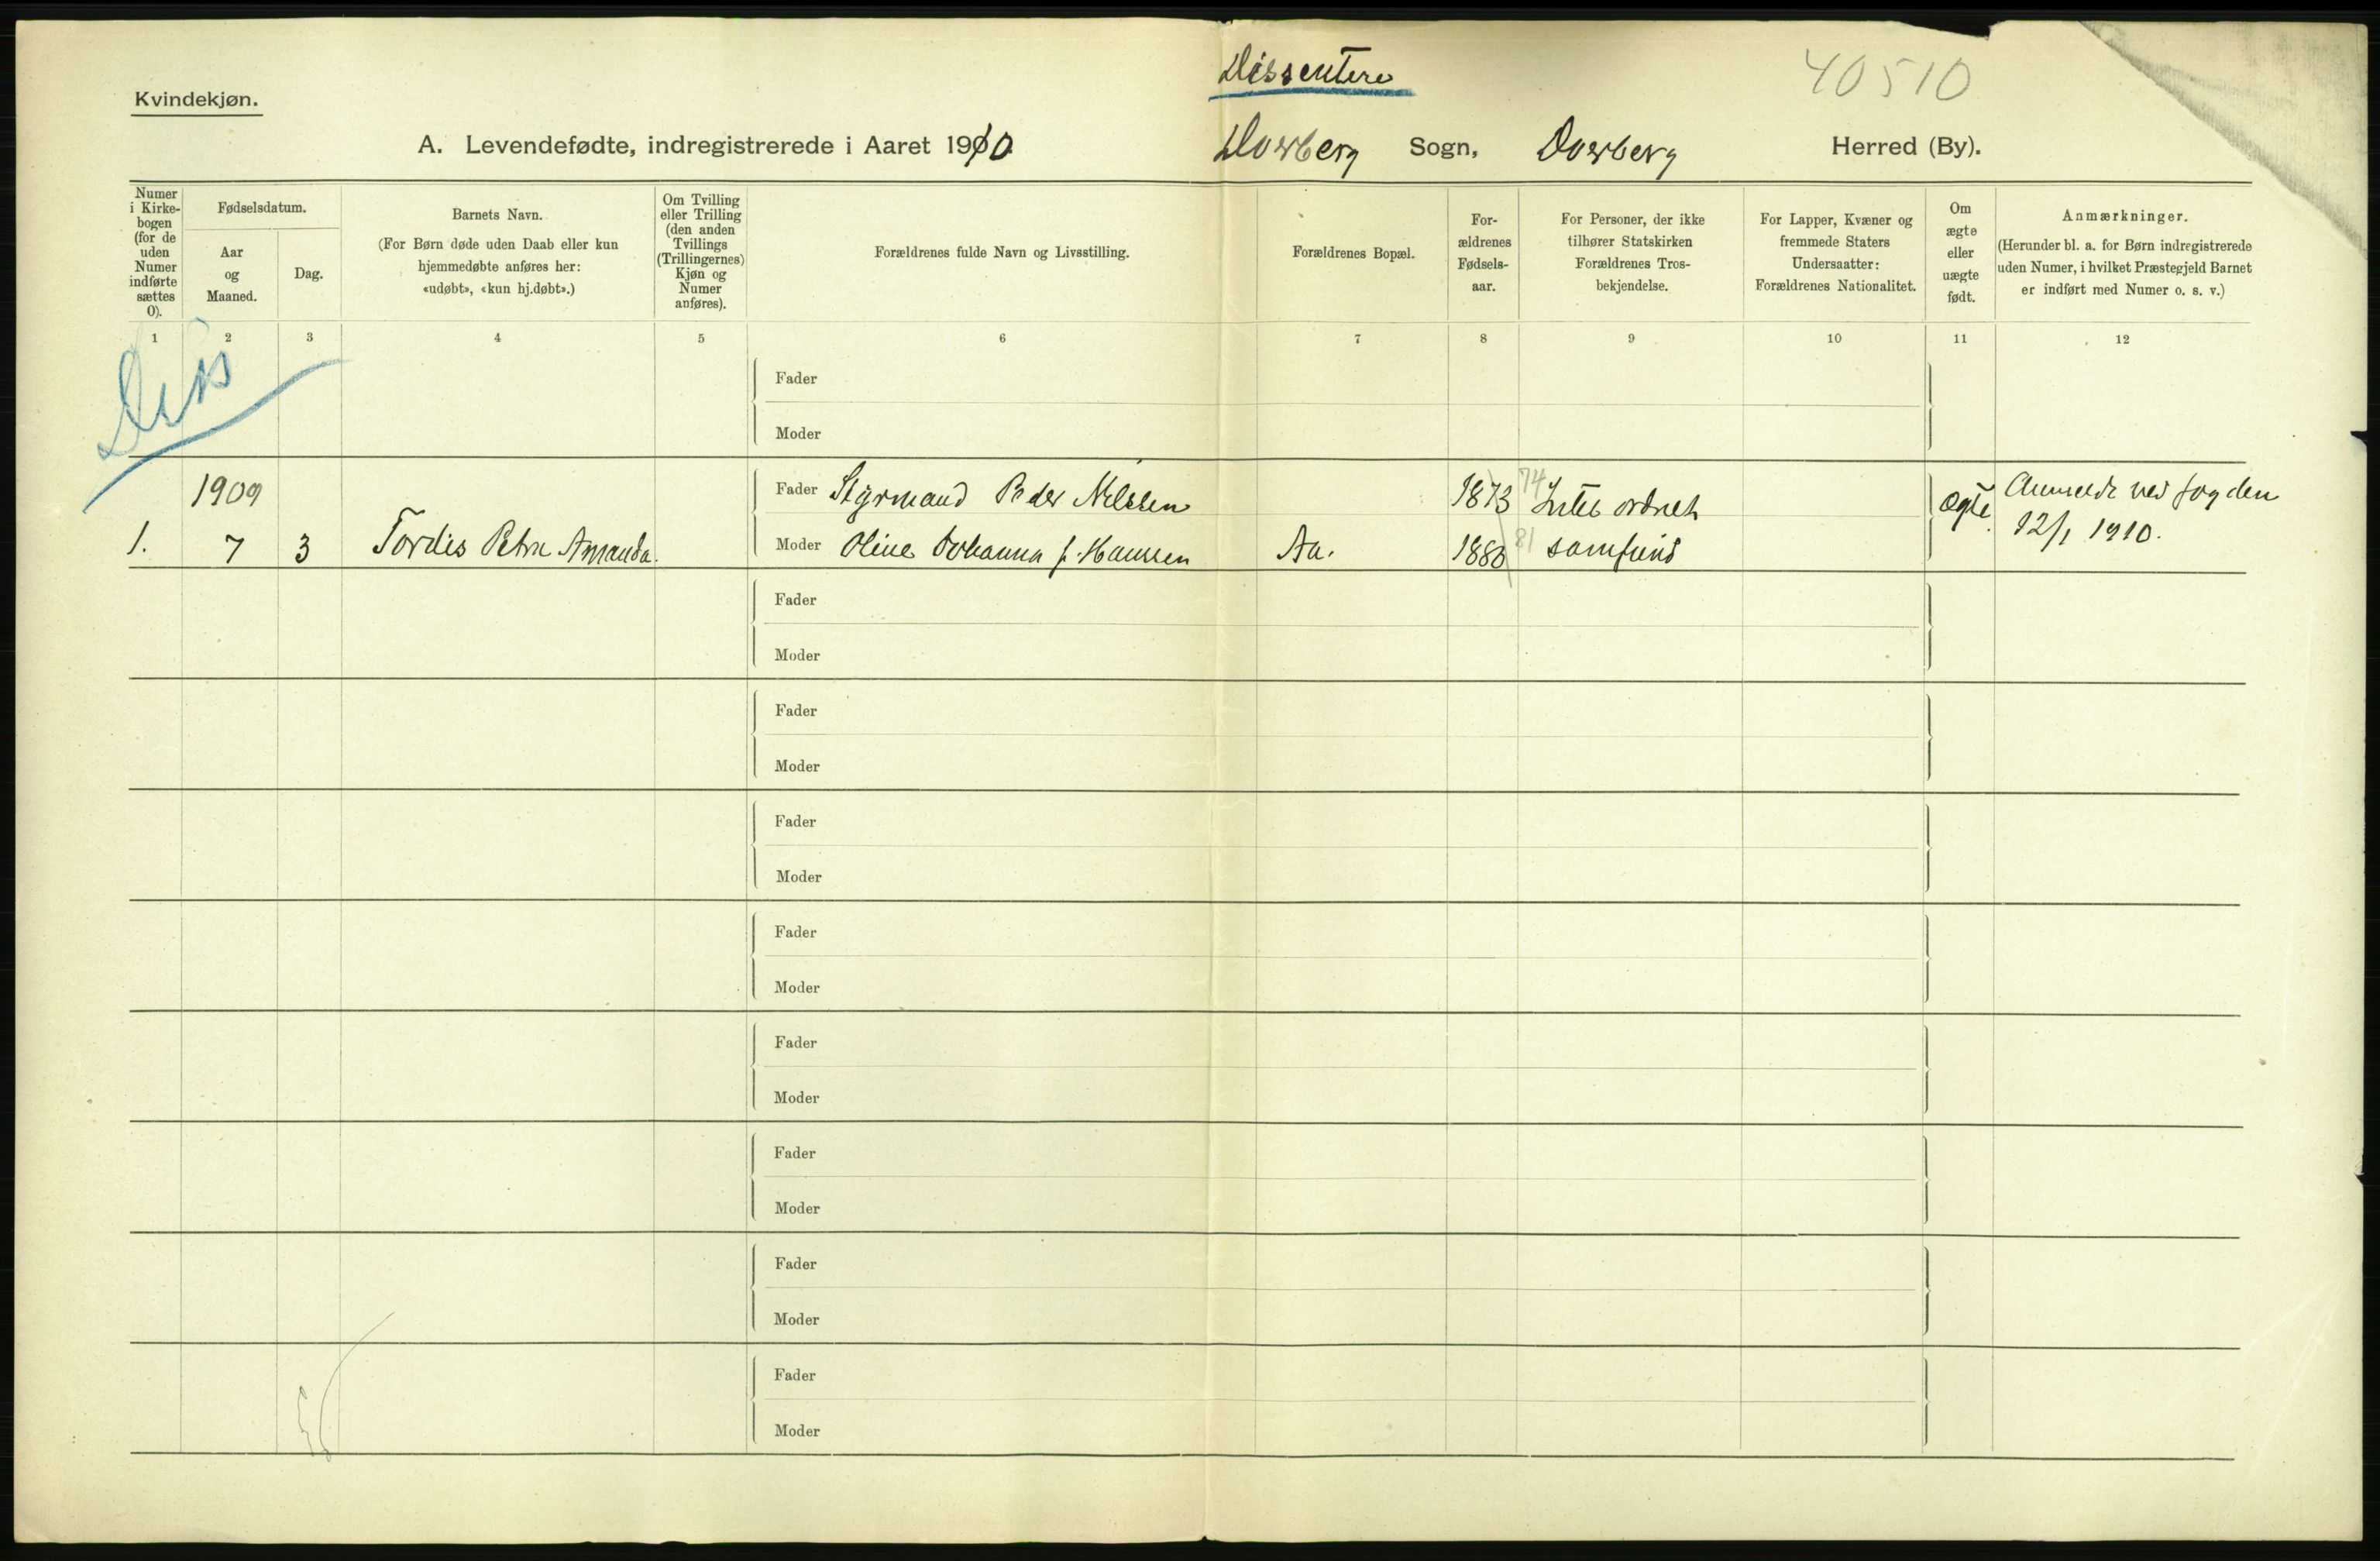 Kvindekjøn.
Dissentere
40510
A. Levendefødte, indregistrerede i Aaret 1910
Dverberg Sogn, Dverberg Herred (By).
Numer i Kirkebogen (for de uden Numer indførte sættes 0).
Fødselsdatum.
Aar og Maaned.
Dag.
Barnets Navn.
(For Børn døde uden Daab eller kun
hjemmedøbte anføres her:
«udøbt», «kun hj.døbt».)
Om Tvilling
eller Trilling
(den anden
Tvillings
(Trillingernes)
Kjøn og
Numer
anføres).
Forældrenes fulde Navn og Livsstilling.
Forældrenes Bopæl.
For-
ældrenes
Fødsels-
aar.
For Personer, der ikke
tilhører Statskirken
Forældrenes Tros-
bekjendelse.
For Lapper, Kvæner og
fremmede Staters
Undersaatter:
Forældrenes Nationalitet.
Om
ægte
eller
uægte
født.
Anmærkninger.
(Herunder bl. a. for Børn indregistrerede
uden Numer, i hvilket Præstegjeld Barnet
er indført med Numer o. s. v.)
1 2 3 4 5 6 7 8 9 10 11 12
Diss
Fader
Moder
1909
Fader Styrmand Peder Nilssen 1873 74 Intet ordnet Ægte Anmeldt ved fogden
1. 7 3 Tordis Petra Amanda. Moder Oline Johanna f. Hanssen Aa. 1880 81 samfund 12/1 1910.
Fader
Moder
Fader
Moder
Fader
Moder
Fader
Moder
Fader
Moder
Fader
Moder
Fader
Moder
Fader
Moder